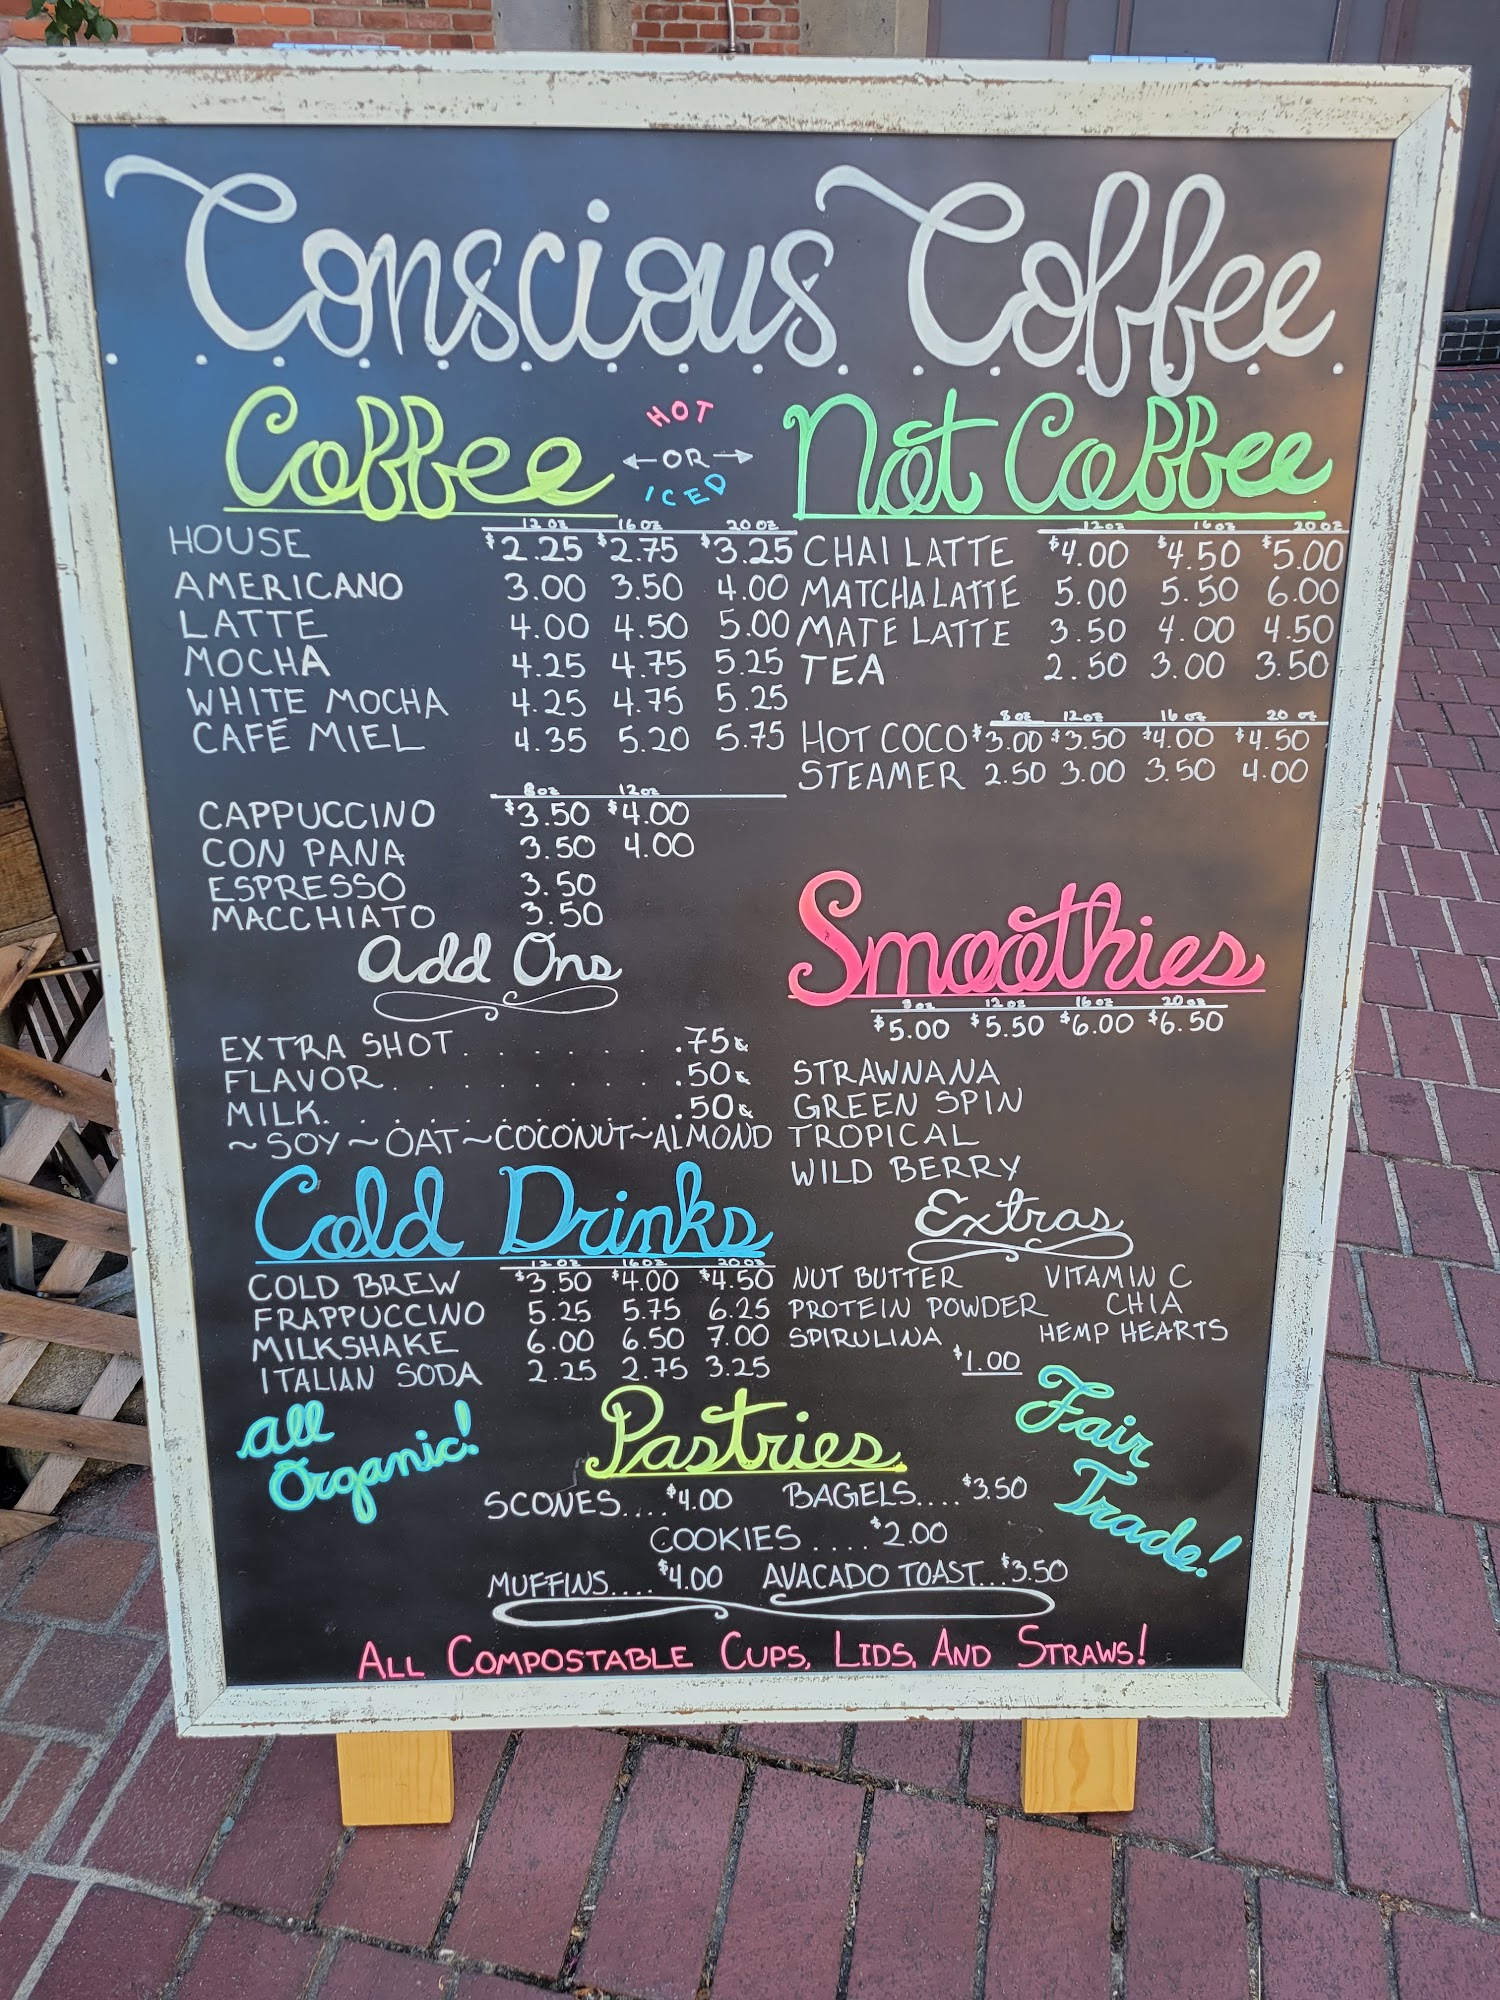 Conscious Coffee
Coffee
HOT
←OR→
ICED
12 OZ 16 OZ 20 OZ
HOUSE $2.25 $2.75 $3.25
AMERICANO 3.00 3.50 4.00
LATTE 4.00 4.50 5.00
MOCHA 4.25 4.75 5.25
WHITE MOCHA 4.25 4.75 5.25
CAFÉ MIEL 4.35 5.20 5.75
8 OZ 12 OZ
CAPPUCCINO $3.50 $4.00
CON PANA 3.50 4.00
ESPRESSO 3.50
MACCHIATO 3.50
Add Ons
EXTRA SHOT. . . . . . . .75¢
FLAVOR. . . . . . . . . .50¢
MILK. . . . . . . . . . .50¢
~SOY~OAT~COCONUT~ALMOND
Cold Drinks
12 OZ 16 OZ 20 OZ
COLD BREW $3.50 $4.00 $4.50
FRAPPUCCINO 5.25 5.75 6.25
MILKSHAKE 6.00 6.50 7.00
ITALIAN SODA 2.25 2.75 3.25
Not Coffee
12 OZ 16 OZ 20 OZ
CHAI LATTE $4.00 $4.50 $5.00
MATCHA LATTE 5.00 5.50 6.00
MATE LATTE 3.50 4.00 4.50
TEA 2.50 3.00 3.50
8 OZ 12 OZ 16 OZ 20 OZ
HOT COCO $3.00 $3.50 $4.00 $4.50
STEAMER 2.50 3.00 3.50 4.00
Smoothies
8 OZ 12 OZ 16 OZ 20 OZ
$5.00 $5.50 $6.00 $6.50
STRAWNANA
GREEN SPIN
TROPICAL
WILD BERRY
Extras
NUT BUTTER VITAMIN C
PROTEIN POWDER CHIA
SPIRULINA HEMP HEARTS
$1.00
All
Organic!
Pastries
SCONES.... $4.00 BAGELS....$3.50
COOKIES .... $2.00
MUFFINS.... $4.00 AVACADO TOAST...$3.50
Fair
Trade!
ALL COMPOSTABLE CUPS, LIDS, AND STRAWS!